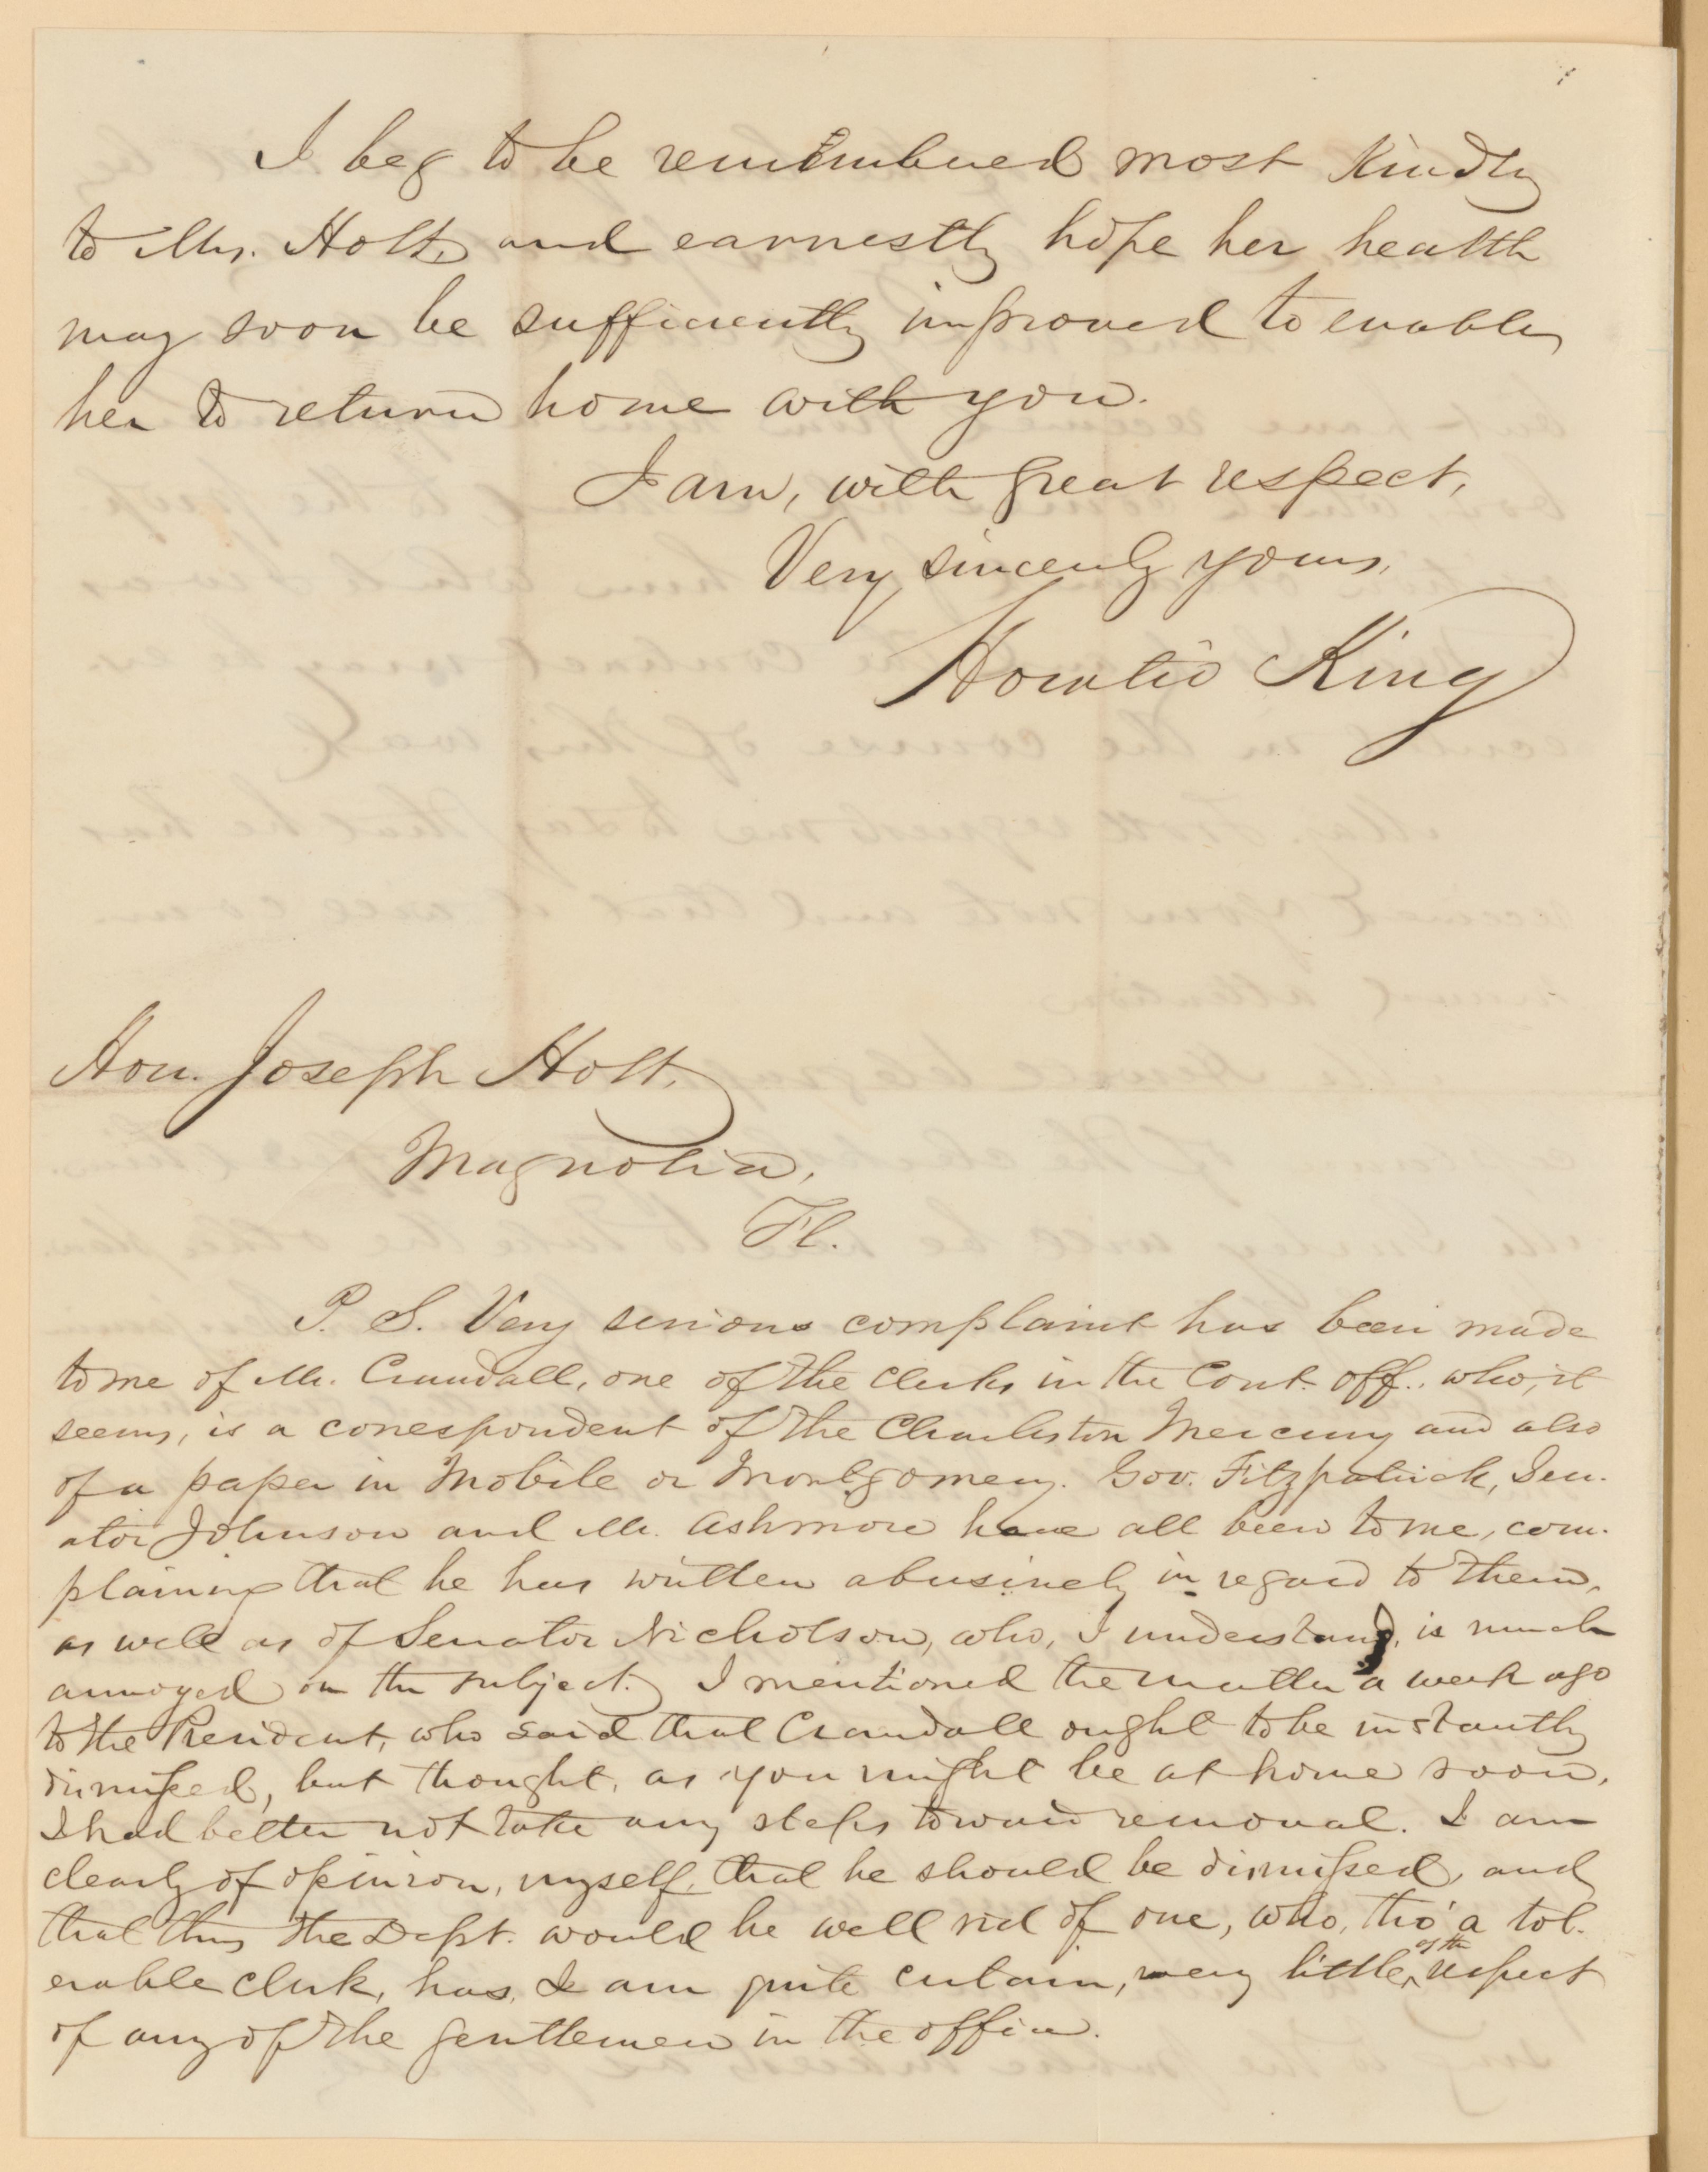 I beg to be remembered most kindly
to Mrs. Holt, and earnestly hope her health
may soon be sufficiently improved to enable
her to return home with you.
I am, with great respect,
Very sincerely yours,
Horatio King
Hon. Joseph Holt,
Magnolia,
Fl.
P. S. Very serious complaint has been made
to me of Mr. Crandall, one of the clerks in the Cont. off., who, it
seems, is a correspondent of the Charleston Mercury and also
of a paper in Mobile or Montgomery. Gov. Fitzpatrick, Sen-
ator Johnson and Mr. Ashmore have all been to me, com-
plaining that he has written abusively in regard to them,
as well as of Senator Nicholson, who, I understand, is much
annoyed on the subject. I mentioned the matter a week ago
to the President, who said that Crandall ought to be instantly
dismissed, but thought, as you might be at home soon,
I had better not take any steps toward removal. I am
clearly of opinion, myself, that he should be dismissed, and
that thus the Dept. would be well rid of one, who, tho' a tol-
erable clerk, has, I am quite certain, very little of the respect
of any of the gentlemen in the office.